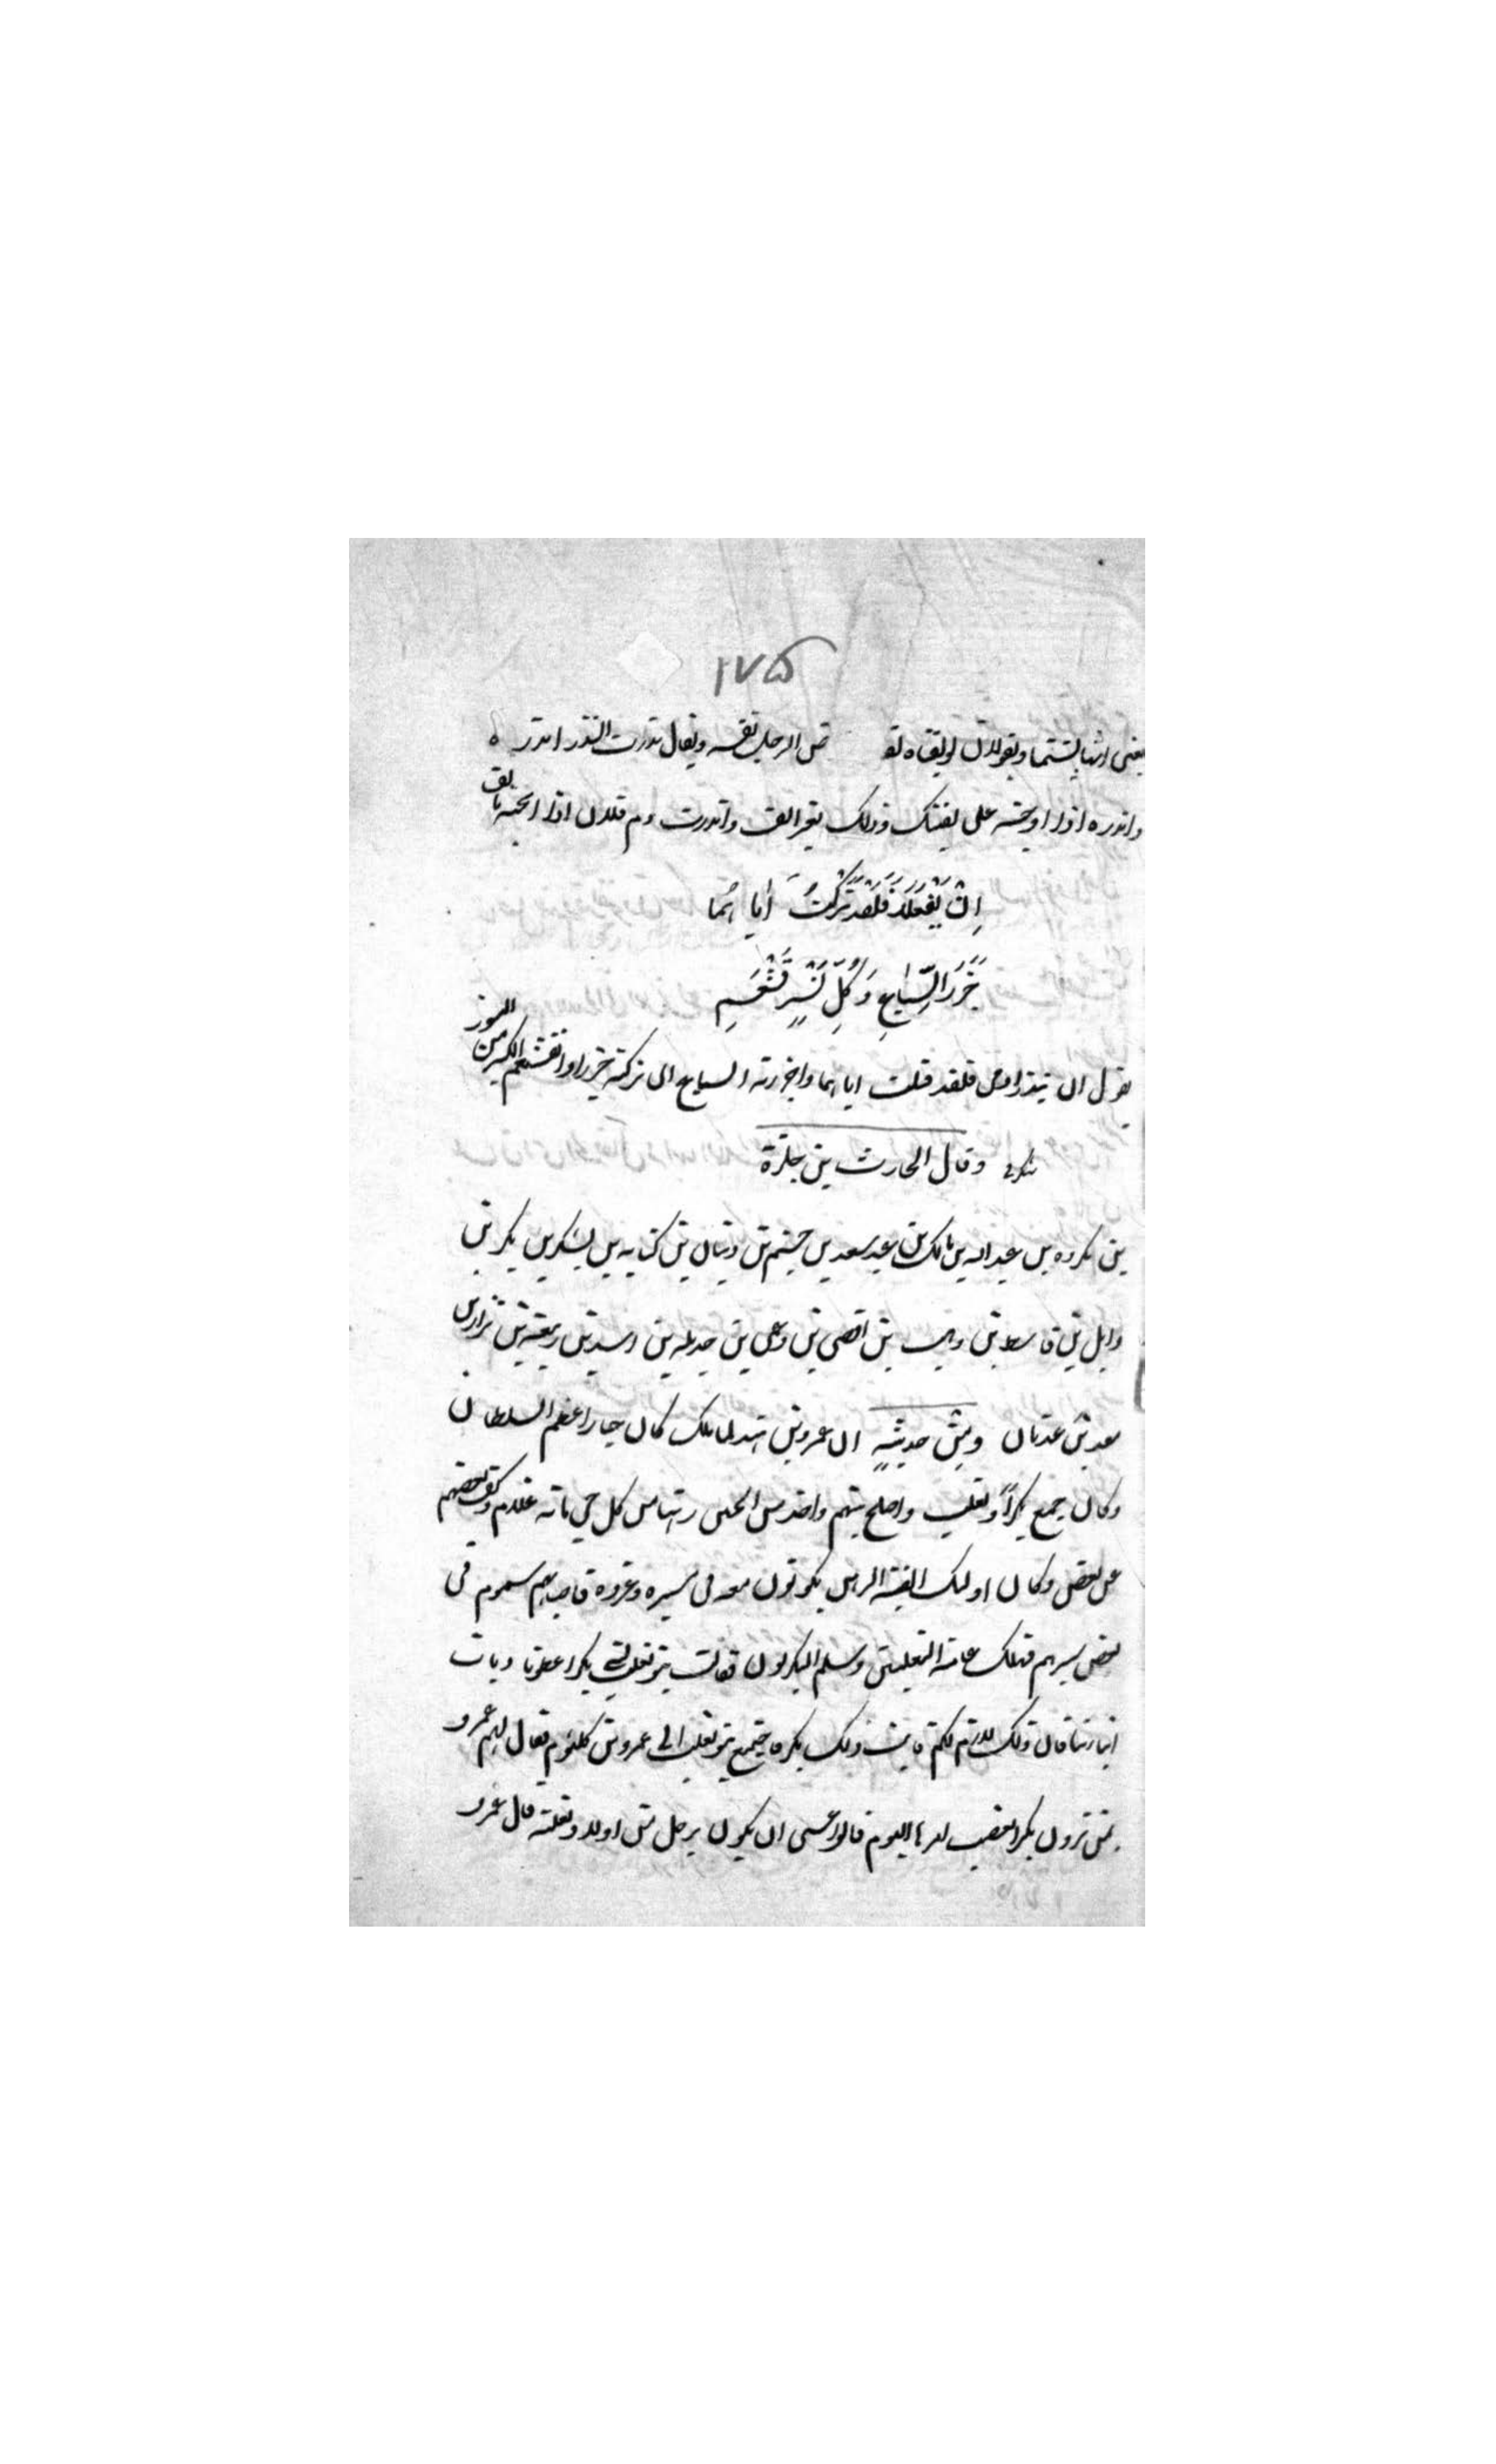 ١٧٥
يعنى انهما يشتما ويقولان لو لقيناه لقـ الرجل نفسه ويقال نذرت النذر انذره
وانذره اذا اوجبته على نفسك وذلك دم فلان اذا ابحته
اِنْ يَفْعَلا فَلَقَدْ تَرَكْتُ اَباهُما
جَزَرَ السِّباعِ وَكُلِّ نَسْرٍ قَشْعَمِ
يقول ان ينذرا دمى فلقد قتلت اباهما واجزرته السباع اى تركته جزرا والقشعم الكبير من النسور
وقال الحارث بن حلزة
بن مكروه بن عبد الله بن مالك بن عبد سعد بن جشم بن ذبيان بن كنانه بن يشكر بن بكر بن
وايل بن قاسط بن هنب بن افصى بن دعمى بن جديله بن اسد بن ربيعه بن نزار بن
معد بن عدنان ومن حديثه ان عمرو بن هند الملك كان جبارا عظم السلطان
وكان جمع بكراً وتغلب واصلح بينهم واخذ من الحيين رهنا من كل حي مائه غلام وكف بعضهم
عن بعض وكان اولئك الرهن يكونون معه فى مسيره وغزوه فاصابهم سموم فى
بعض مسيرهم فهلك عامة التغلبين وسلم البكريون فقالت بنو تغلب بكرا اعطونا ديات
ابنائنا فان ذلك لازم لكم فابت ذلك بكر فاجتمع بنو تغلب الى عمرو بن كلثوم فقال لهم عمرو
بمن ترون بكرا تعصب امرها اليوم قالوا عسى ان يكون برجل من اولاد ثعلبة قال عمرو